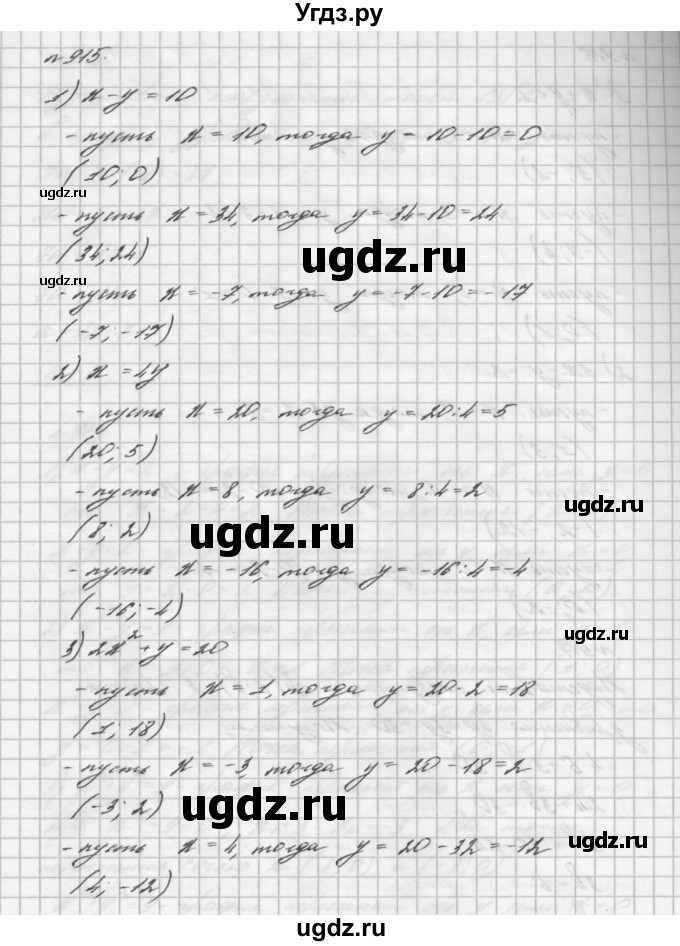 Угдз.ру
№915.
1) x - y = 10
- пусть x = 10, тогда y = 10 - 10 = 0
(10; 0)
ugdz.ru
- пусть x = 34, тогда y = 34 - 10 = 24
(34; 24)
ugdz.ru
ugdz.ru
- пусть x = -7, тогда y = -7 - 10 = -17
(-7; -17)
2) x = 4y
- пусть x = 20, тогда y = 20 : 4 = 5
(20; 5)
- пусть x = 8, тогда y = 8 : 4 = 2
ugdz.ru
(8; 2)
ugdz.ru
- пусть x = -16, тогда y = -16 : 4 = -4
(-16; -4)
ugdz.ru
3) 2x² + y = 20
- пусть x = 1, тогда y = 20 - 2 = 18
(1; 18)
- пусть x = -3, тогда y = 20 - 18 = 2
(-3; 2)
ugdz.ru
ugdz.ru
- пусть x = 4, тогда y = 20 - 32 = -12
(4; -12)
ugdz.ru